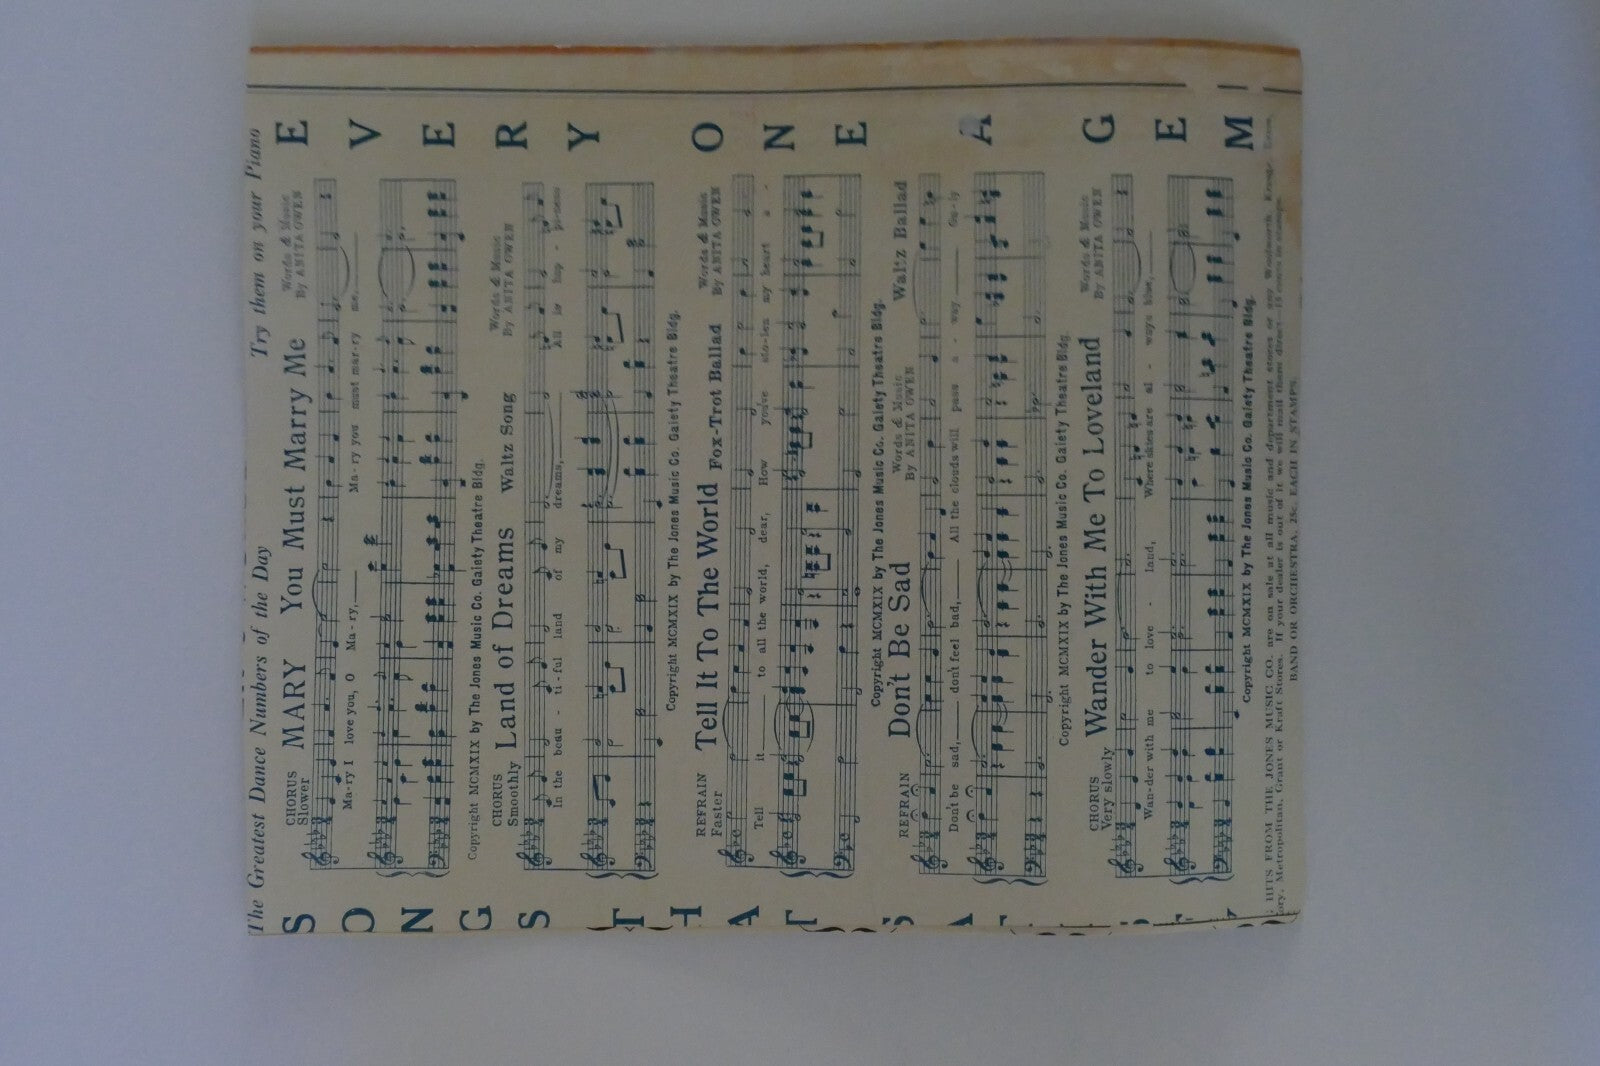 The Greatest Dance Numbers of the Day Try them on your Piano
SONGS THAT
EVERY ONE A GEM
CHORUS
Slower
MARY You Must Marry Me
Words & Music
By ANITA OWEN
Ma-ry I love you, O Ma-ry, Ma-ry you must mar-ry me,
Copyright MCMXIX by The Jones Music Co. Gaiety Theatre Bldg.
CHORUS
Smoothly
Land of Dreams Waltz Song
Words & Music
By ANITA OWEN
In the beau - ti-ful land of my dreams, All is hap - pi-ness
Copyright MCMXIX by The Jones Music Co. Gaiety Theatre Bldg.
REFRAIN
Faster
Tell It To The World Fox-Trot Ballad
Words & Music
By ANITA OWEN
Tell it to all the world, dear, How you've sto-len my heart a -
Copyright MCMXIX by The Jones Music Co. Gaiety Theatre Bldg.
REFRAIN
Don't Be Sad
Words & Music
By ANITA OWEN
Waltz Ballad
Don't be sad, don't feel bad, All the clouds will pass a - way
Copyright MCMXIX by The Jones Music Co. Gaiety Theatre Bldg.
CHORUS
Very slowly
Wander With Me To Loveland
Words & Music
By ANITA OWEN
Wan-der with me to love - land, Where skies are al - ways blue,
Copyright MCMXIX by The Jones Music Co. Gaiety Theatre Bldg.
HITS FROM THE JONES MUSIC CO. are on sale at all music and department stores or any Woolworth, Kresge,
Metropolitan, Grant or Kraft Stores. If your dealer is out of it we will mail them direct. 15 cents in stamps.
BAND OR ORCHESTRA, 25c. EACH IN STAMPS.